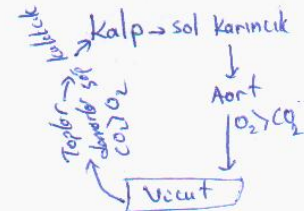 Kalp → sol Karıncık
Aort
O₂>CO₂
Vücut
Toplar
damarlar sağ
kulakcık
CO₂>O₂